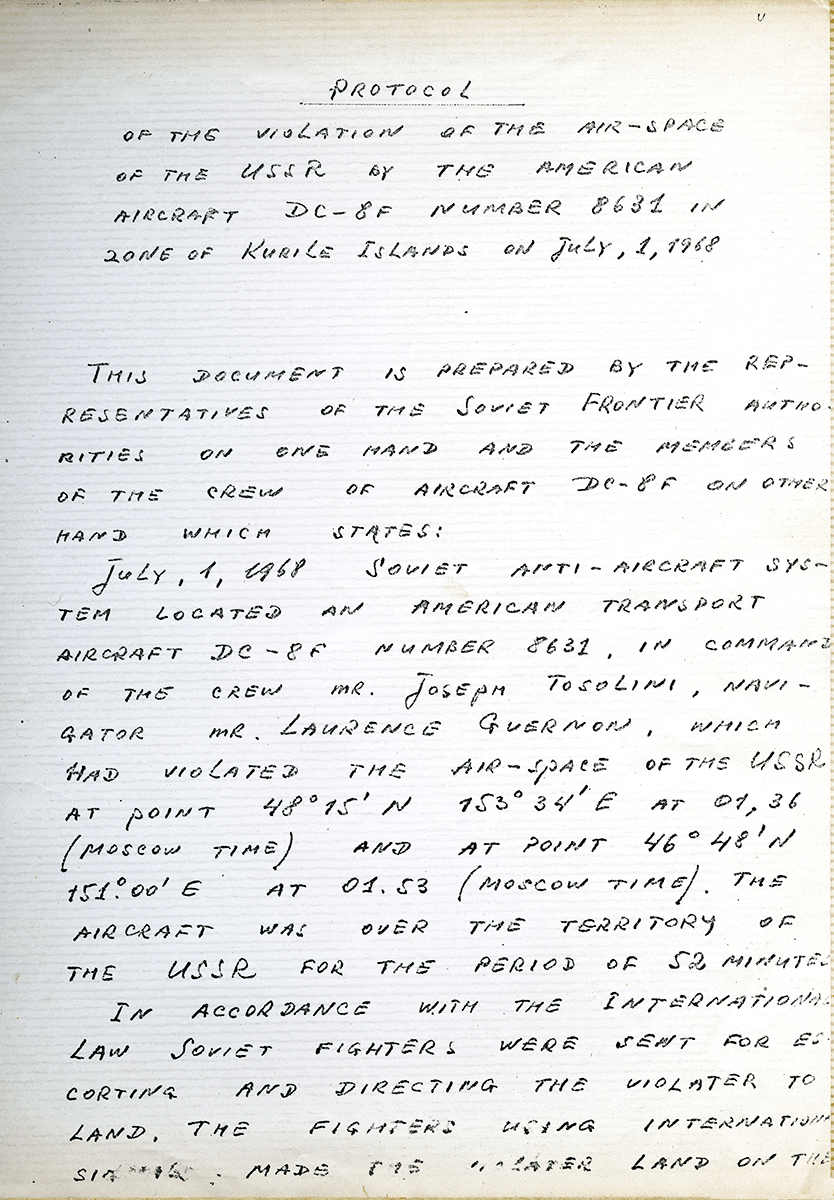 PROTOCOL
OF THE VIOLATION OF THE AIR-SPACE
OF THE USSR BY THE AMERICAN
AIRCRAFT DC-8F NUMBER 8631 IN
ZONE OF KURILE ISLANDS ON JULY, 1, 1968
THIS DOCUMENT IS PREPARED BY THE REP-
RESENTATIVES OF THE SOVIET FRONTIER AUTHO-
RITIES ON ONE HAND AND THE MEMBERS
OF THE CREW OF AIRCRAFT DC-8F ON OTHER
HAND WHICH STATES:
JULY, 1, 1968 SOVIET ANTI-AIRCRAFT SYS-
TEM LOCATED AN AMERICAN TRANSPORT
AIRCRAFT DC-8F NUMBER 8631, IN COMMAND
OF THE CREW MR. JOSEPH TOSOLINI, NAVI-
GATOR MR. LAURENCE GUERNON, WHICH
HAD VIOLATED THE AIR-SPACE OF THE USSR
AT POINT 48°15' N 153°34' E AT 01,36
(MOSCOW TIME) AND AT POINT 46°48' N
151°00' E AT 01.53 (MOSCOW TIME). THE
AIRCRAFT WAS OVER THE TERRITORY OF
THE USSR FOR THE PERIOD OF 52 MINUTES
IN ACCORDANCE WITH THE INTERNATIONAL
LAW SOVIET FIGHTERS WERE SENT FOR ES-
CORTING AND DIRECTING THE VIOLATER TO
LAND. THE FIGHTERS USING INTERNATION
MADE THE LAND ON THE